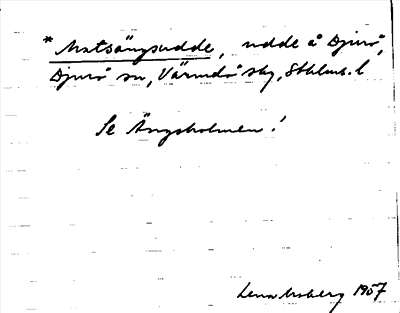 * Matsängsudde, udde å Djurö,
Djurö sn, Värmdö skg, Sthlms. l
Se Ängsholmen!
Lena Moberg 1957